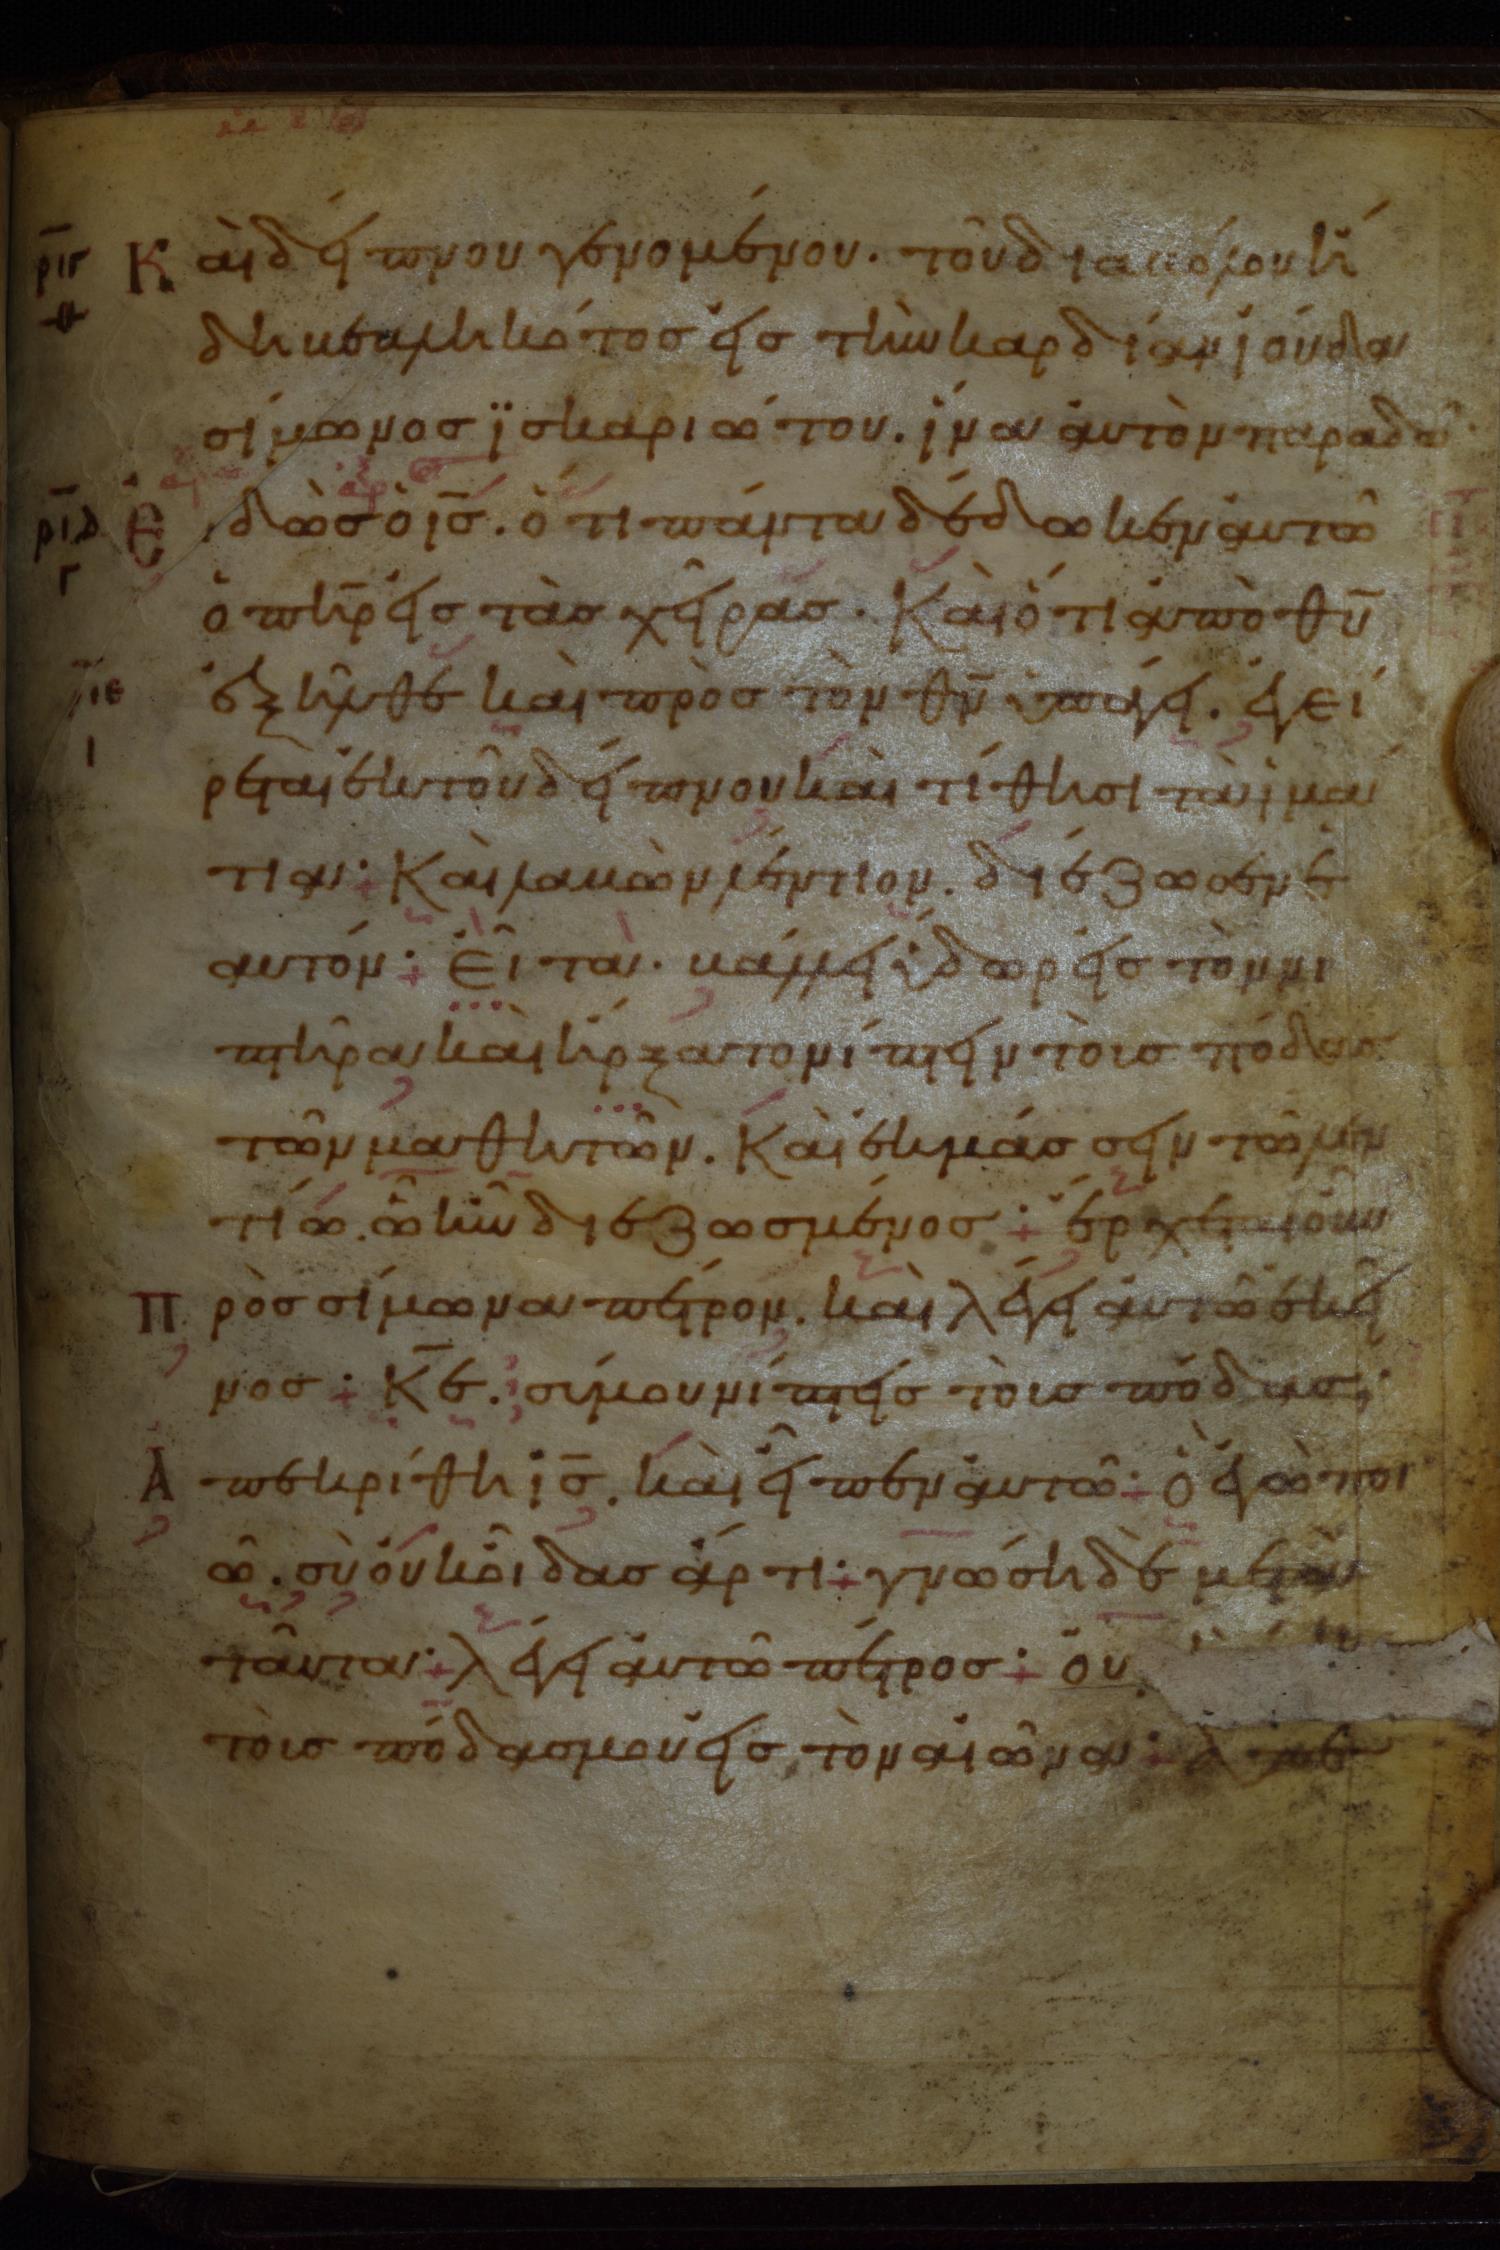 Καὶ δείπνου γενομένου. τοῦ διαβόλου ἤ
δη βεβληκότος εἰς τὴν καρδίαν ἰούδα
σίμωνος ϊσκαριώτου. ἵνα αὐτὸν παραδῶ
ριγ
ριδ
γ
Εἰδὼς ὁ ις̅. ὅτι πάντα δέδωκεν αὐτῶ
ὁ πηρ̅ εἰς τὰς χεῖρας. Καὶ ὅτι ἀπὸ θυ̅
ἐξῆλθε καὶ πρὸς τὸν θν̅ ὑπάγει. ἐγεί
ιε
ι
ρεται ἐκ τοῦ δείπνου καὶ τίθησι τὰ ἱμά
τια· Καὶ λαβὼν λέντιον. διέζωσεν ἑ
αυτόν· εἶτα. βάλλει ὕδωρ εἰς τὸν νι
πτῆρα καὶ ἤρξατο νίπτειν τοὺς πόδας
τῶν μαθητῶν. Καὶ ἐκμάσσειν τῶ λεν
τίω. ὧ ἦν διεζωσμένος· ἔρχεται οὖν
πρὸς σίμωνα πέτρον. καὶ λέγει αὐτῶ ἐκεῖ
νος· Κε̅. σύ μου νίπτεις τοὺς πόδας;
Ἀπεκρίθη ις̅. καὶ εἶπεν αὐτῶ· ὃ ἐγὼ ποι
ῶ. σὺ οὐκ οἶδας ἄρτι· γνώση δὲ μετὰ
ταῦτα· λέγει αὐτῶ πέτρος· οὐ
τοὺς πόδας μου εἰς τὸν αἰῶνα·